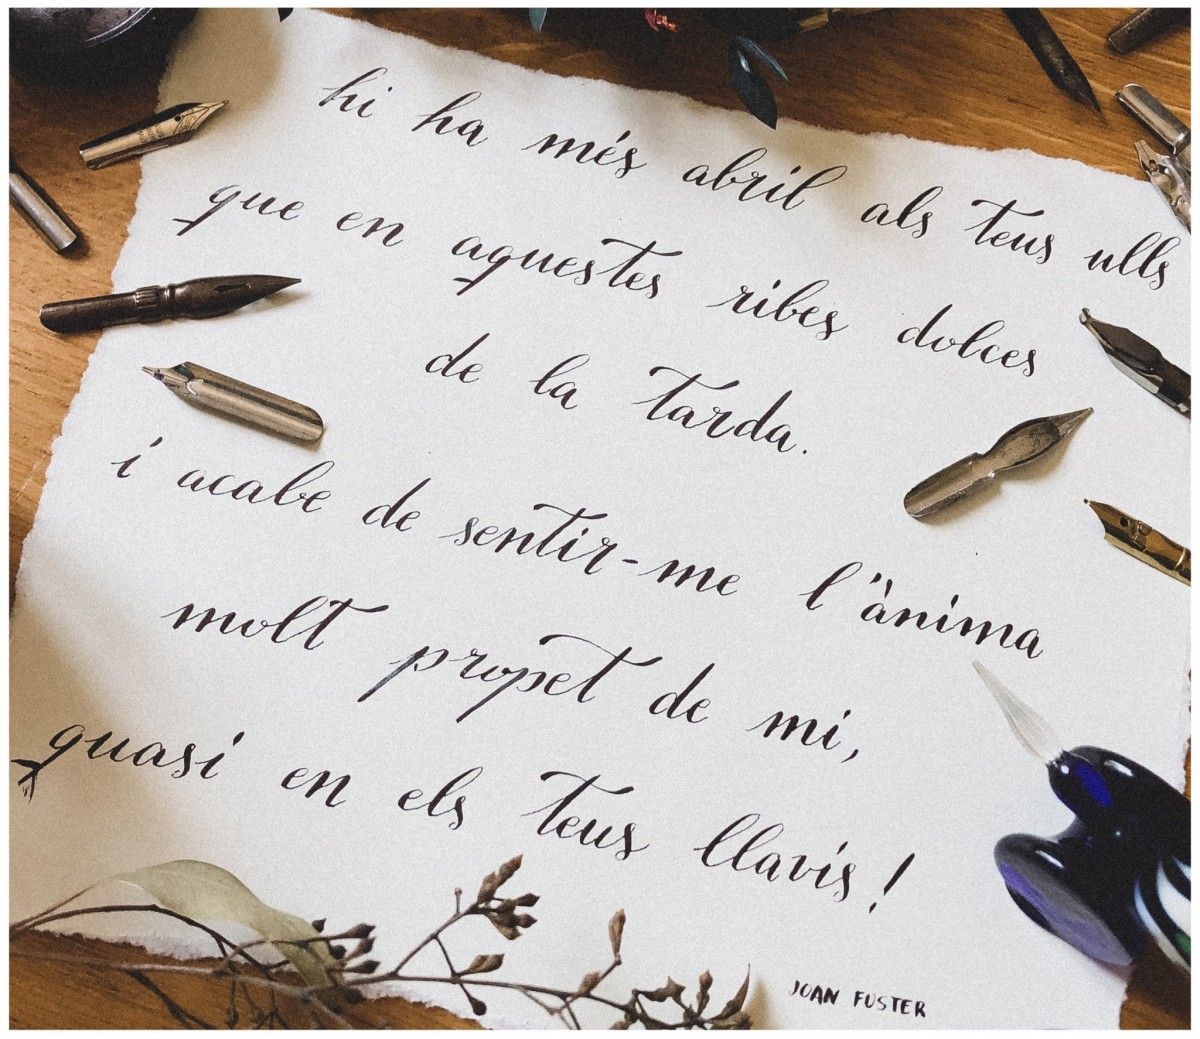 hi ha més abril als teus ulls
que en aquestes ribes dolces
de la tarda.
i acabe de sentir-me l'ànima
molt propet de mi,
quasi en els teus llavis!
JOAN FUSTER